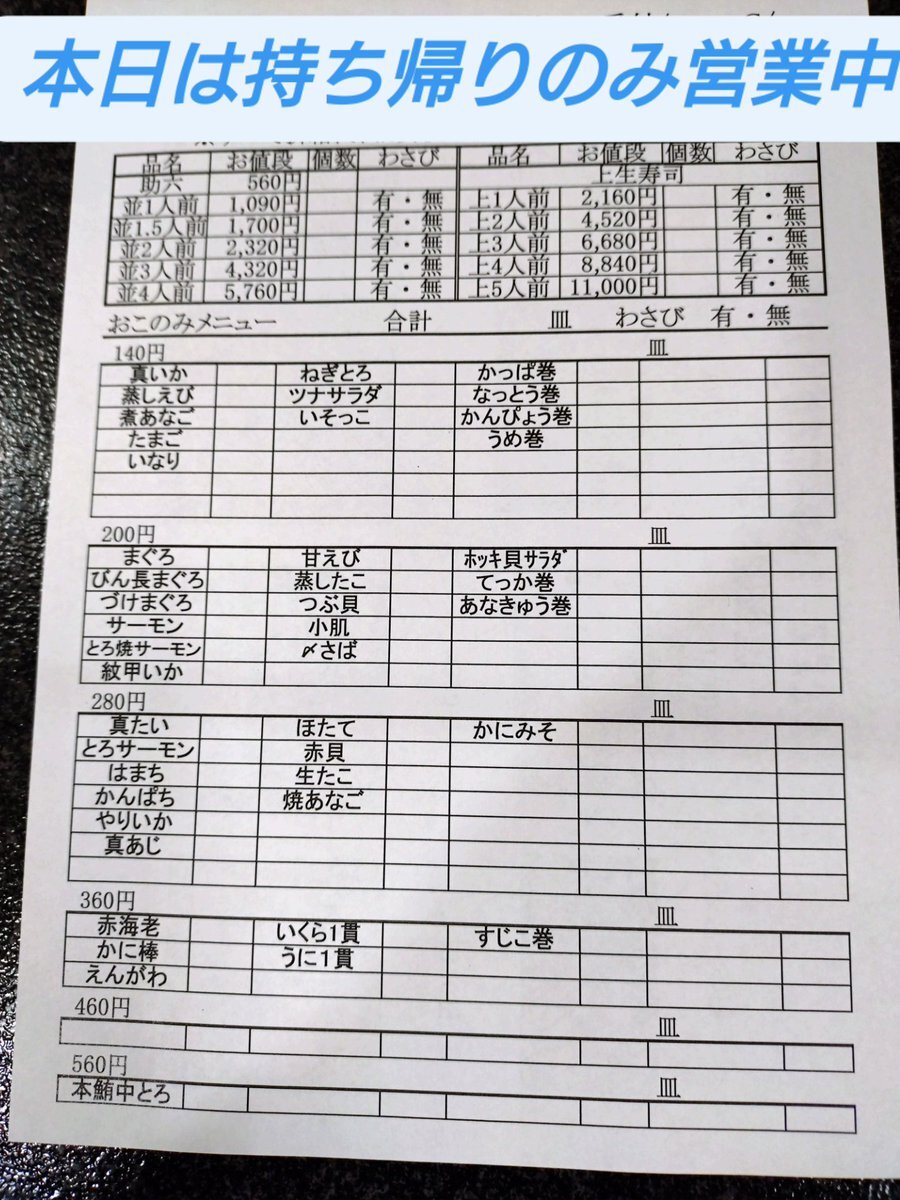 本日は持ち帰りのみ営業中
品名 お値段 個数 わさび 品名 お値段 個数 わさび
助六 560円 上生寿司
並1人前 1,090円 有・無 上1人前 2,160円 有・無
並1.5人前 1,700円 有・無 上2人前 4,520円 有・無
並2人前 2,320円 有・無 上3人前 6,680円 有・無
並3人前 4,320円 有・無 上4人前 8,840円 有・無
並4人前 5,760円 有・無 上5人前 11,000円 有・無
おこのみメニュー 合計 皿 わさび 有・無
140円 皿
真いか ねぎとろ かっぱ巻
蒸しえび ツナサラダ なっとう巻
煮あなご いそっこ かんぴょう巻
たまご うめ巻
いなり
200円 皿
まぐろ 甘えび ホッキ貝サラダ
びん長まぐろ 蒸したこ てっか巻
づけまぐろ つぶ貝 あなきゅう巻
サーモン 小肌
とろ焼サーモン 〆さば
紋甲いか
280円 皿
真たい ほたて かにみそ
とろサーモン 赤貝
はまち 生たこ
かんぱち 焼あなご
やりいか
真あじ
360円 皿
赤海老 いくら1貫 すじこ巻
かに棒 うに1貫
えんがわ
460円 皿
560円 皿
本鮪中とろ